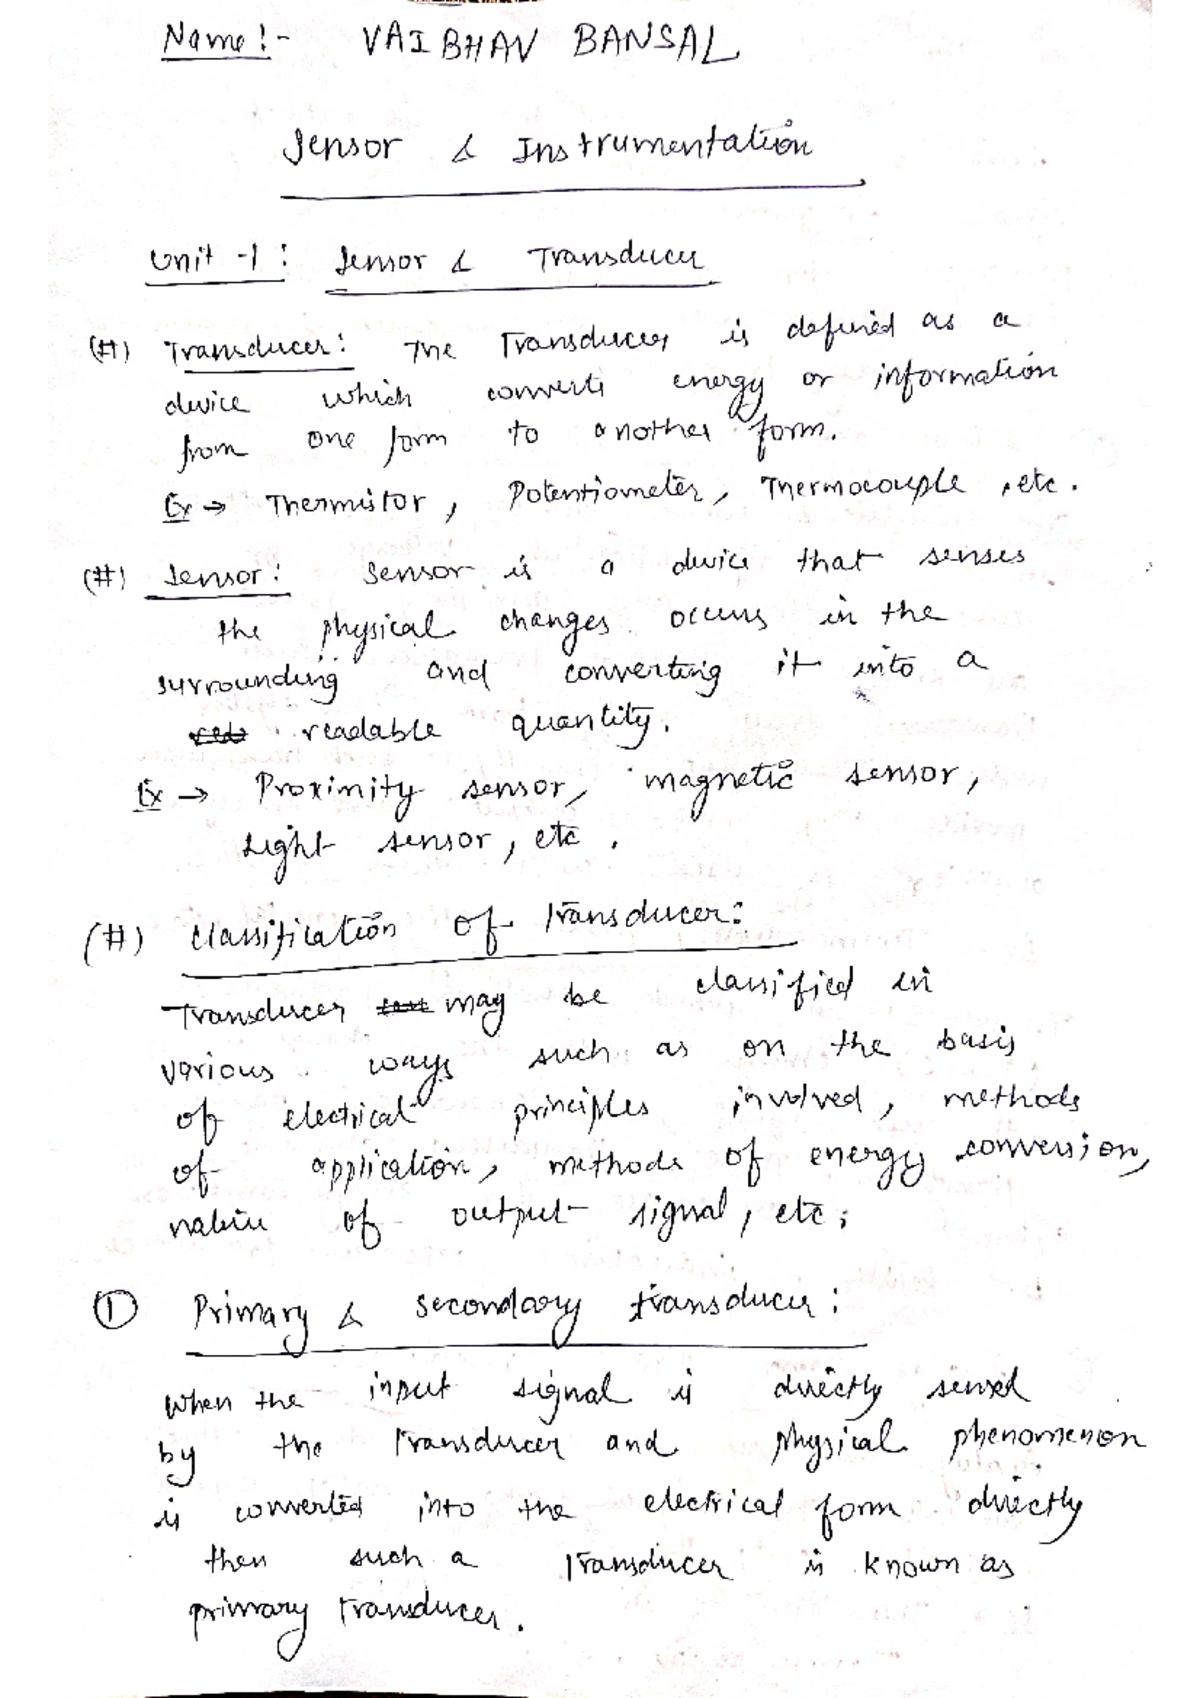 Name :- VAIBHAV BANSAL
Sensor & Instrumentation
Unit -1 : Sensor & Transducer
(#) Transducer : The Transducer is defined as a
device which converts energy or information
from one form to another form.
Ex → Thermistor, Potentiometer, Thermocouple, etc.
(#) Sensor : Sensor is a device that senses
the physical changes occurs in the
surrounding and converting it into a
readable quantity.
Ex → Proximity sensor, magnetic sensor,
Light sensor, etc.
(#) Classification of Transducer :
Transducer may be classified in
various ways such as on the basis
of electrical principles involved, methods
of application, methods of energy conversion,
nature of output signal, etc;
① Primary & secondary transducer :
When the input signal is directly sensed
by the transducer and physical phenomenon
is converted into the electrical form directly
then such a transducer is known as
primary transducer.